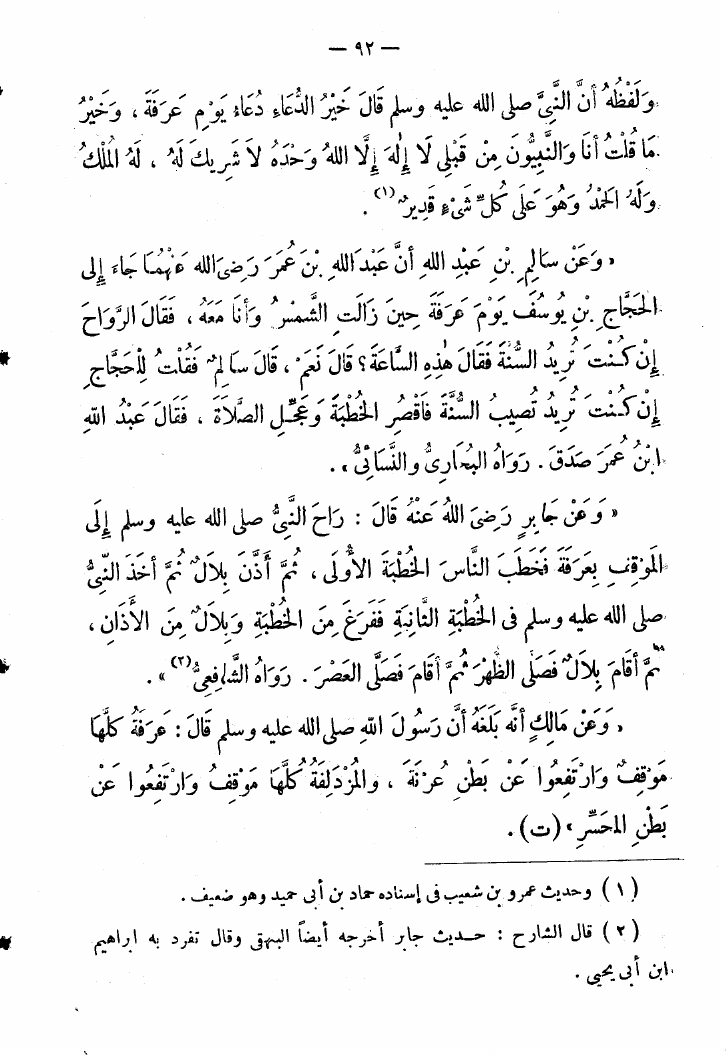 — ٩٢ —
وَلَفْظُهُ أَنَّ النَّبِيَّ صلى الله عليه وسلم قَالَ خَيْرُ الدُّعَاءِ دُعَاءُ يَوْمِ عَرَفَةَ ، وَخَيْرُ
مَا قُلْتُ أَنَا وَالنَّبِيُّونَ مِنْ قَبْلِي لَا إِلٰهَ إِلَّا اللهُ وَحْدَهُ لَا شَرِيكَ لَهُ ، لَهُ الْمُلْكُ
وَلَهُ الْحَمْدُ وَهُوَ عَلَى كُلِّ شَيْءٍ قَدِيرٌ (١) .
« وَعَنْ سَالِمِ بْنِ عَبْدِ اللهِ أَنَّ عَبْدَ اللهِ بْنَ عُمَرَ رَضِيَ الله عَنْهُمَا جَاءَ إِلى
الْحَجَّاجِ بْنِ يُوسُفَ يَوْمَ عَرَفَةَ حِينَ زَالَتِ الشَّمْسُ وَأَنَا مَعَهُ ، فَقَالَ الرَّوَاحَ
إِنْ كُنْتَ تُرِيدُ السُّنَّةَ فَقَالَ هٰذِهِ السَّاعَةَ ؟ قَالَ نَعَمْ ، قَالَ سَالِمٌ فَقُلْتُ لِلْحَجَّاجِ
إِنْ كُنْتَ تُرِيدُ تُصِيبُ السُّنَّةَ فَاقْصُرِ الْخُطْبَةَ وَعَجِّلِ الصَّلَاةَ ، فَقَالَ عَبْدُ اللهِ
ابْنُ عُمَرَ صَدَقَ . رَوَاهُ الْبُخَارِيُّ وَالنَّسَائِيُّ » .
« وَعَنْ جَابِرٍ رَضِيَ اللهُ عَنْهُ قَالَ : رَاحَ النَّبِيُّ صلى الله عليه وسلم إِلَى
الْمَوْقِفِ بِعَرَفَةَ فَخَطَبَ النَّاسَ الْخُطْبَةَ الْأُولَى ، ثُمَّ أَذَّنَ بِلَالٌ ثُمَّ أَخَذَ النَّبِيُّ
صلى الله عليه وسلم فى الْخُطْبَةِ الثَّانِيَةِ فَفَرَغَ مِنَ الْخُطْبَةِ وَبِلَالٌ مِنَ الْأَذَانِ ،
ثُمَّ أَقَامَ بِلَالٌ فَصَلَّى الظُّهْرَ ثُمَّ أَقَامَ فَصَلَّى الْعَصْرَ . رَوَاهُ الشَّافِعِيُّ (٢) » .
« وَعَنْ مَالِكٍ أَنَّهُ بَلَغَهُ أَنَّ رَسُولَ اللهِ صلى الله عليه وسلم قَالَ : عَرَفَةُ كُلُّهَا
مَوْقِفٌ وَارْتَفِعُوا عَنْ بَطْنِ عُرَنَةَ ، وَالْمُزْدَلِفَةُ كُلُّهَا مَوْقِفٌ وَارْتَفِعُوا عَنْ
بَطْنِ الْمُحَسِّرِ » (ت) .
(١) وحديث عمرو بن شعيب فى إسناده حماد بن أبى حميد وهو ضعيف .
(٢) قال الشارح : حـديث جابر أخرجه أيضاً البيهقى وقال تفرد به ابراهيم
ابن أبى يحيى .